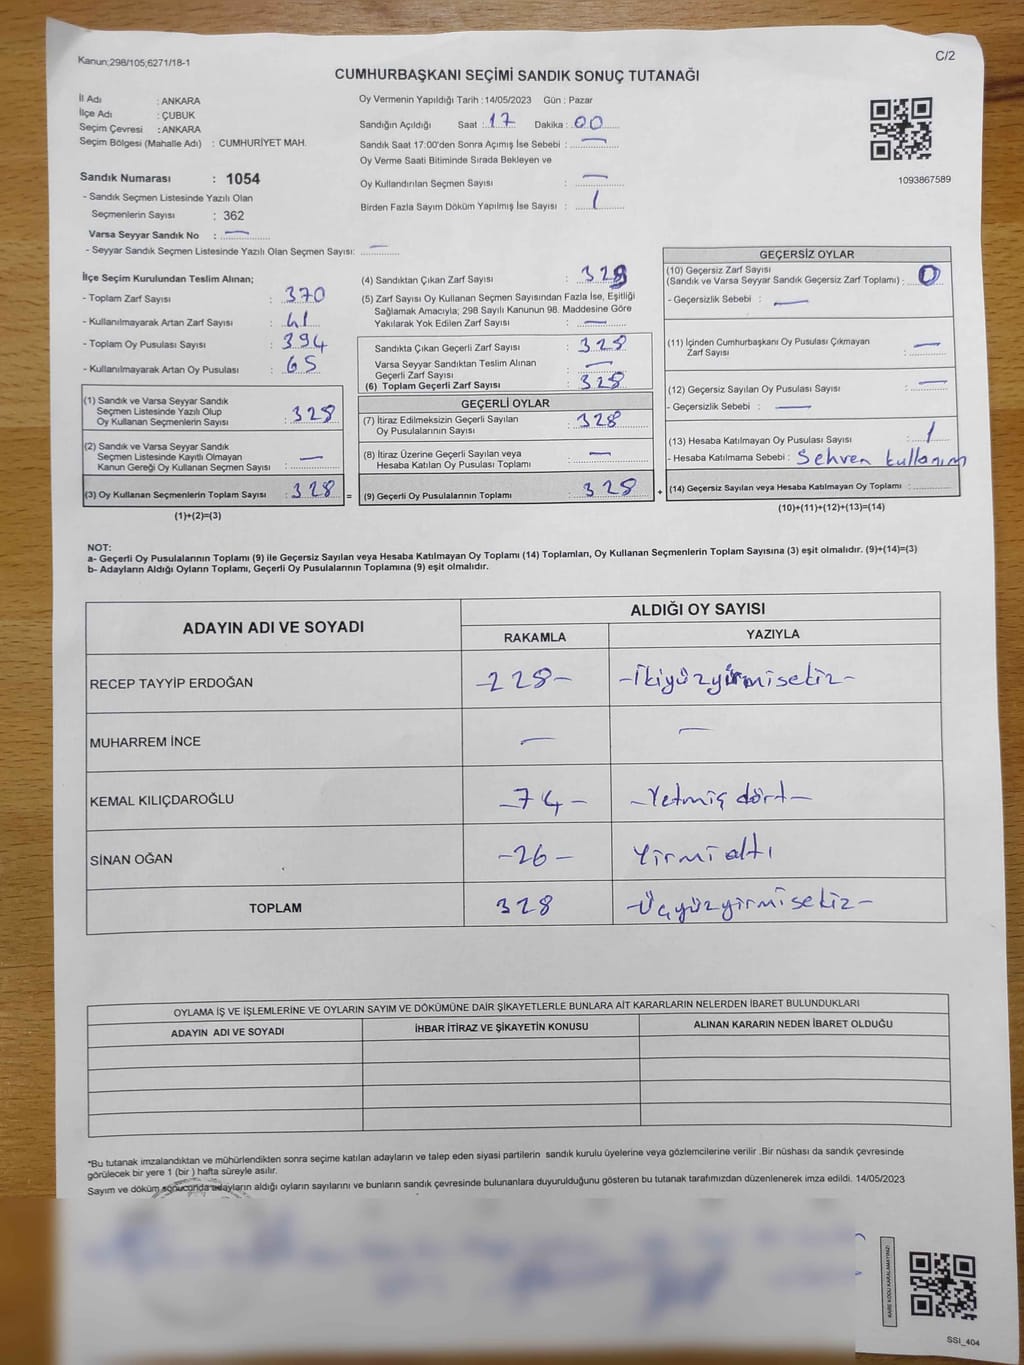 Kanun;298/105;6271/18-1
C/2
CUMHURBAŞKANI SEÇİMİ SANDIK SONUÇ TUTANAĞI
İl Adı : ANKARA
İlçe Adı : ÇUBUK
Seçim Çevresi : ANKARA
Seçim Bölgesi (Mahalle Adı) : CUMHURİYET MAH.
Sandık Numarası : 1054
- Sandık Seçmen Listesinde Yazılı Olan
Seçmenlerin Sayısı : 362
Varsa Seyyar Sandık No : —
- Seyyar Sandık Seçmen Listesinde Yazılı Olan Seçmen Sayısı: —
Oy Vermenin Yapıldığı Tarih :14/05/2023 Gün : Pazar
Sandığın Açıldığı Saat : 17 Dakika : 00
Sandık Saat 17:00'den Sonra Açımış İse Sebebi : —
Oy Verme Saati Bitiminde Sırada Bekleyen ve
Oy Kullandırılan Seçmen Sayısı : —
Birden Fazla Sayım Döküm Yapılmış İse Sayısı : 1
1093867589
İlçe Seçim Kurulundan Teslim Alınan;
- Toplam Zarf Sayısı : 370
- Kullanılmayarak Artan Zarf Sayısı : 41
- Toplam Oy Pusulası Sayısı : 394
- Kullanılmayarak Artan Oy Pusulası : 65
(1) Sandık ve Varsa Seyyar Sandık
Seçmen Listesinde Yazılı Olup
Oy Kullanan Seçmenlerin Sayısı : 328
(2) Sandık ve Varsa Seyyar Sandık
Seçmen Listesinde Kayıtlı Olmayan
Kanun Gereği Oy Kullanan Seçmen Sayısı : —
(3) Oy Kullanan Seçmenlerin Toplam Sayısı : 328 =
(1)+(2)=(3)
(4) Sandıktan Çıkan Zarf Sayısı : 328
(5) Zarf Sayısı Oy Kullanan Seçmen Sayısından Fazla İse, Eşitliği
Sağlamak Amacıyla; 298 Sayılı Kanunun 98. Maddesine Göre
Yakılarak Yok Edilen Zarf Sayısı : —
Sandıkta Çıkan Geçerli Zarf Sayısı : 328
Varsa Seyyar Sandıktan Teslim Alınan
Geçerli Zarf Sayısı : —
(6) Toplam Geçerli Zarf Sayısı : 328
GEÇERLİ OYLAR
(7) İtiraz Edilmeksizin Geçerli Sayılan
Oy Pusulalarının Sayısı : 328
(8) İtiraz Üzerine Geçerli Sayılan veya
Hesaba Katılan Oy Pusulası Toplamı : —
(9) Geçerli Oy Pusulalarının Toplamı : 328 +
GEÇERSİZ OYLAR
(10) Geçersiz Zarf Sayısı
(Sandık ve Varsa Seyyar Sandık Geçersiz Zarf Toplamı) : 0
- Geçersizlik Sebebi : —
(11) İçinden Cumhurbaşkanı Oy Pusulası Çıkmayan
Zarf Sayısı : —
(12) Geçersiz Sayılan Oy Pusulası Sayısı : —
- Geçersizlik Sebebi : —
(13) Hesaba Katılmayan Oy Pusulası Sayısı : 1
- Hesaba Katılmama Sebebi : Sehven kullanım
(14) Geçersiz Sayılan veya Hesaba Katılmayan Oy Toplamı :
(10)+(11)+(12)+(13)=(14)
NOT:
a- Geçerli Oy Pusulalarının Toplamı (9) ile Geçersiz Sayılan veya Hesaba Katılmayan Oy Toplamı (14) Toplamları, Oy Kullanan Seçmenlerin Toplam Sayısına (3) eşit olmalıdır. (9)+(14)=(3)
b- Adayların Aldığı Oyların Toplamı, Geçerli Oy Pusulalarının Toplamına (9) eşit olmalıdır.
ADAYIN ADI VE SOYADI
ALDIĞI OY SAYISI
RAKAMLA YAZIYLA
RECEP TAYYİP ERDOĞAN -228- -İkiyüzyirmisekiz-
MUHARREM İNCE — —
KEMAL KILIÇDAROĞLU -74- -Yetmiş dört-
SİNAN OĞAN -26- Yirmi altı
TOPLAM 328 -Üçyüzyirmisekiz-
OYLAMA İŞ VE İŞLEMLERİNE VE OYLARIN SAYIM VE DÖKÜMÜNE DAİR ŞİKAYETLERLE BUNLARA AİT KARARLARIN NELERDEN İBARET BULUNDUKLARI
ADAYIN ADI VE SOYADI İHBAR İTİRAZ VE ŞİKAYETİN KONUSU ALINAN KARARIN NEDEN İBARET OLDUĞU
*Bu tutanak imzalandıktan ve mühürlendikten sonra seçime katılan adayların ve talep eden siyasi partilerin sandık kurulu üyelerine veya gözlemcilerine verilir .Bir nüshası da sandık çevresinde
görülecek bir yere 1 (bir ) hafta süreyle asılır.
Sayım ve döküm sonucunda adayların aldığı oyların sayılarını ve bunların sandık çevresinde bulunanlara duyurulduğunu gösteren bu tutanak tarafımızdan düzenlenerek imza edildi. 14/05/2023
KARE KODU KARALAMAYINIZ!
SSI_404